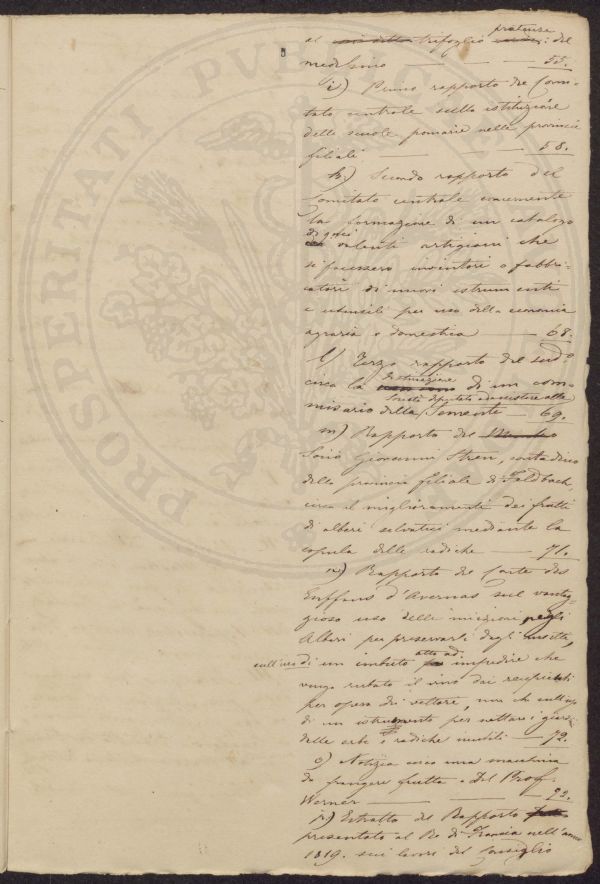 al trifoglio pratense del
medesimo — 55.
i) Primo rapporto del Comi-
tato centrale sulla istituzione
delle scuole pomarie nelle provincie
filiali — 58.
k) Secondo rapporto del
Comitato centrale concernente
la formazione di un catalogo
di quei valenti artigiani che
si facessero inventori o fabbri-
catori di nuovi istrumenti
e utensili per uso della economia
agraria e domestica — 68.
l) Terzo rapporto del sud.o
circa la destinazione di un com-
missario della Società deputato ad assistere alle
Semente — 69.
m) Rapporto del
Socio Giovanni Stren, contadino
della provincia filiale di Feldbach,
circa il miglioramento dei frutti
di alberi selvatici mediante la
copula delle radiche — 71.
n) Rapporto del Conte des
Enffans d'Avernas sul vantag-
gioso uso delle unzioni negli
Alberi per preservarli dagli insetti,
sull'uso di un imbuto atto ad impedire che
venga rubato il vino dai recipienti
per opera dei vetture,
di un istrumento per nettare i giardi
delle erbe e radiche inutili — 72.
o) Notizia circa una macchina
da frangere frutta. Del Prof.
Werner — 92.
p) Estratto del Rapporto
presentato al Re di Francia nell'anno
1819. sui lavori del Consiglio
PROSPERITATI PUBLICAE